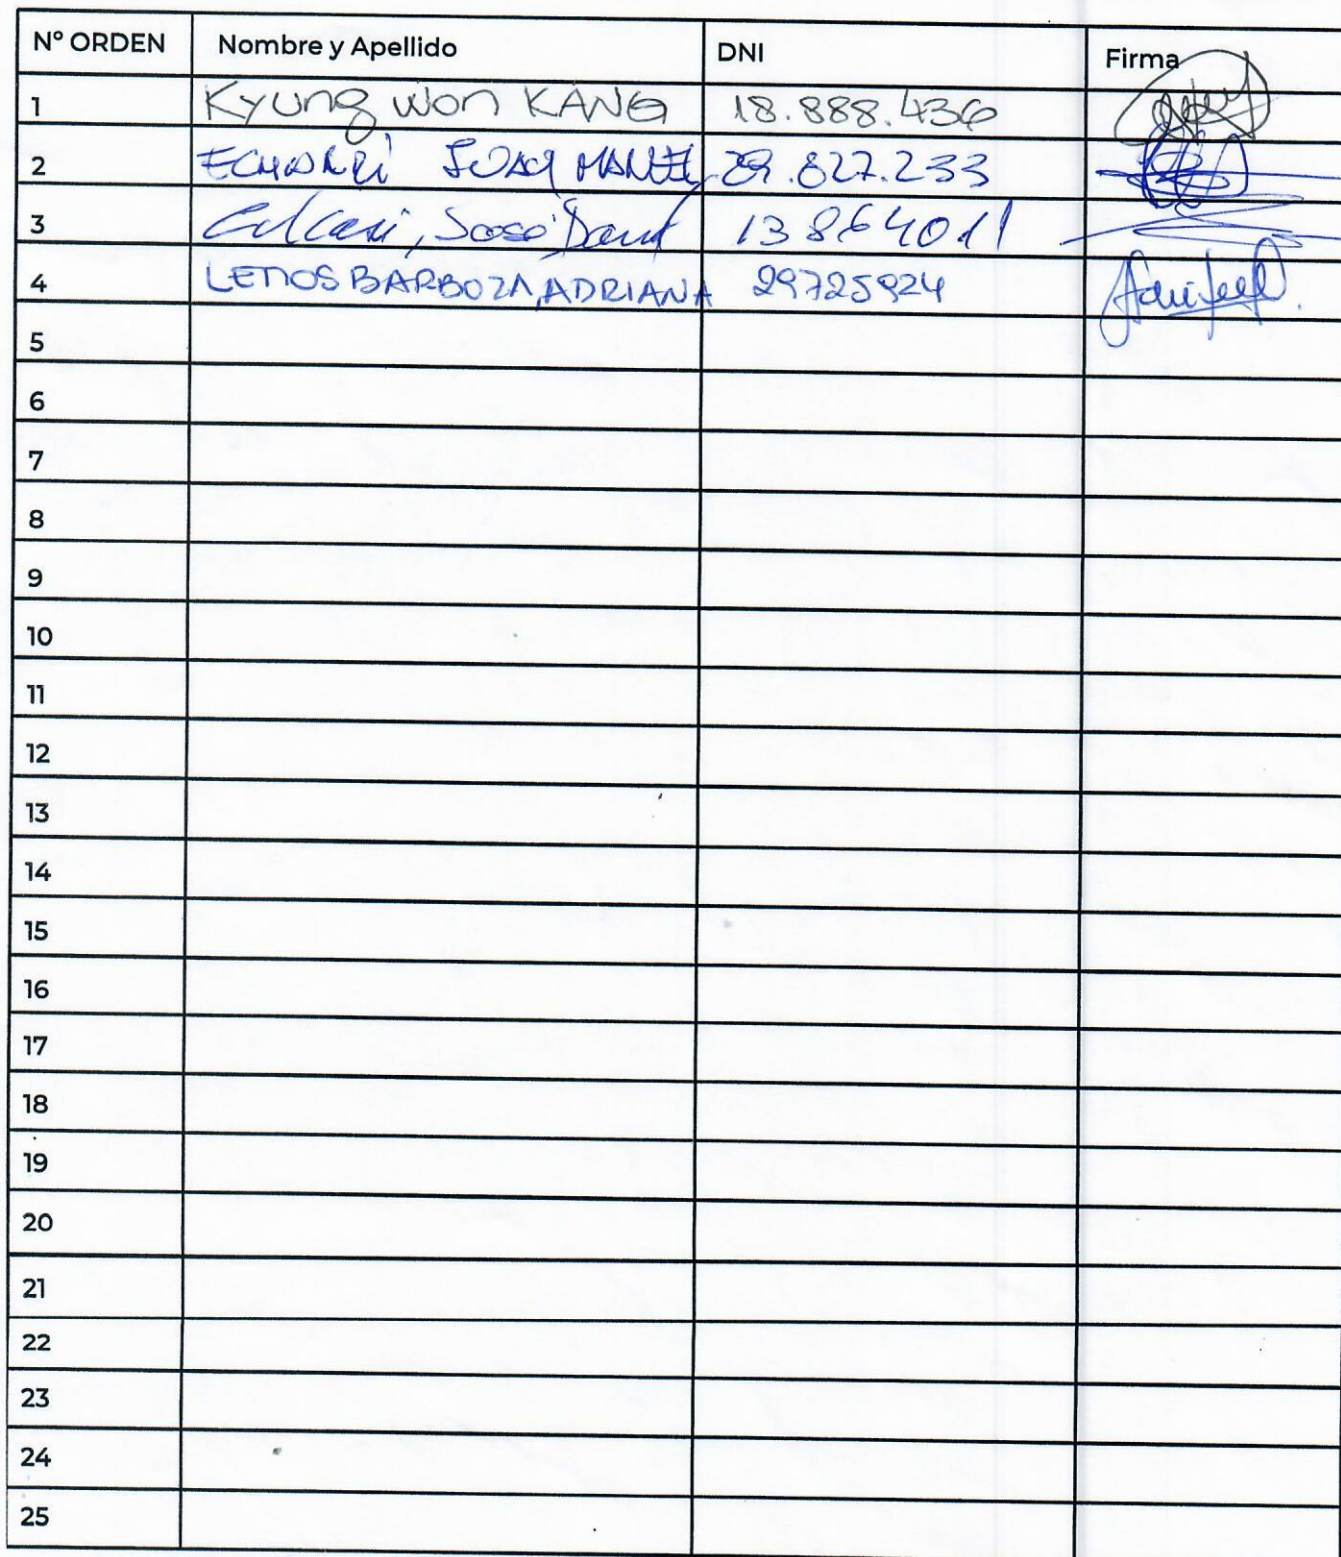 Nº ORDEN Nombre y Apellido DNI Firma
1 Kyung Won KANG 18.888.436
2 MANUEL 29.827.233
3 13864011
4 LEMOS BARBOZA, ADRIANA 29725924
5
6
7
8
9
10
11
12
13
14
15
16
17
18
19
20
21
22
23
24
25